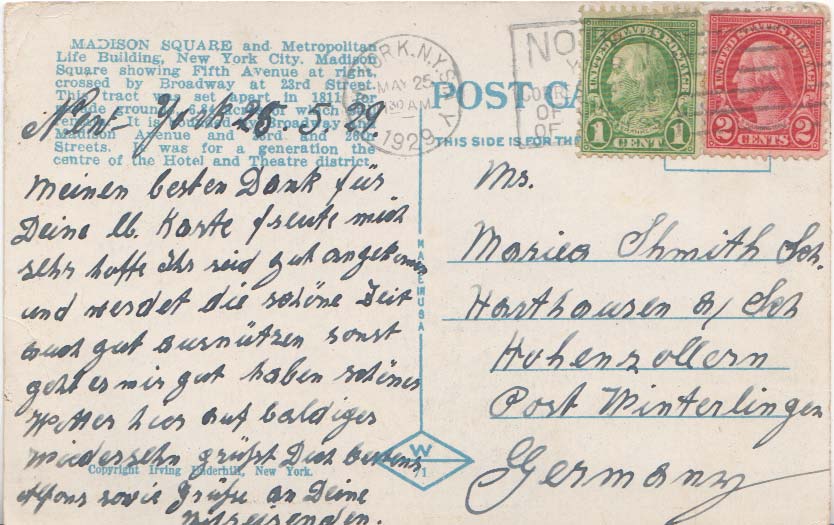 MADISON SQUARE and Metropolitan
Life Building, New York City. Madison
Square showing Fifth Avenue at right,
crossed by Broadway at 23rd Street.
This tract was set apart in 1811 for
Madison Avenue and 23rd and 26th
Streets. It was for a generation the
centre of the Hotel and Theatre district.
New-York 26.5.29
Meinen besten Dank für
Deine lb. Karte freute mich
sehr hoffe Ihr seid gut angekommen
und werdet die schöne Zeit
auch gut ausnützen sonst
geht es mir gut haben schönes
Wetter hier auf baldiges
Wiedersehn grüßt Dich bestens
Alfons sowie Grüße an Deine
Mitreisenden.
Copyright Irving Underhill, New York.
YORK, N.Y.
MAY 25
30 AM
1929
POST CA
THIS SIDE IS FOR THE
MADE IN USA
W
71
NO
OF
OF
UNITED STATES POSTAGE
1 CENT 1
UNITED STATES POSTAGE
2 CENTS 2
Ms.
Mariea Shmith Sch.
Harthausen a/ Sch
Hohenzollern
Post Winterlingen
Germany